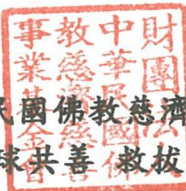 財團法人
中華民國佛
教慈濟慈善
事業基金會
民國佛教慈濟
球共善 救拔